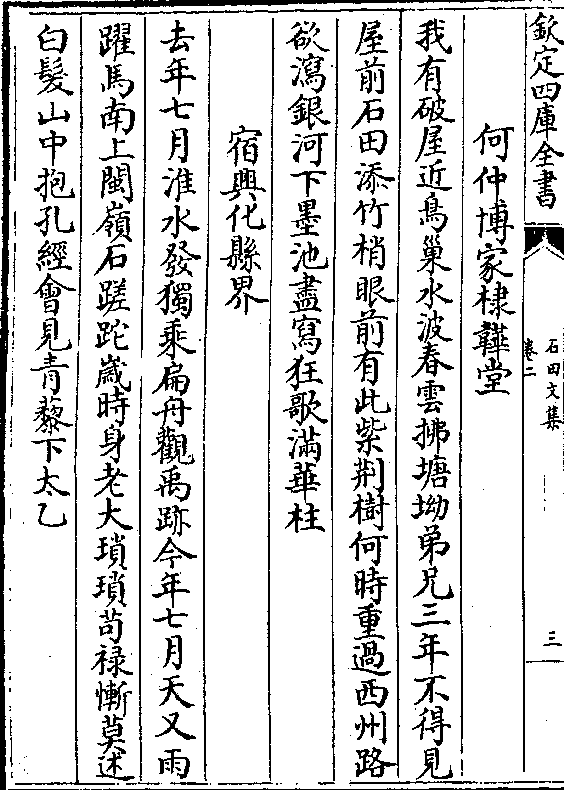 欽定四庫全書
石田文集
卷二
三
何仲博家棣韡堂
我有破屋近鳥巢水波春雲拂塘坳弟兄三年不得見
屋前石田添竹梢眼前有此紫荆樹何時重過西州路
欲瀉銀河下墨池盡寫狂歌滿華柱
宿興化縣界
去年七月淮水發獨乘扁舟觀禹跡今年七月天又雨
躍馬南上閩嶺石蹉跎歲時身老大瑣瑣苟禄慚莫述
白髮山中抱孔經會見青藜下太乙